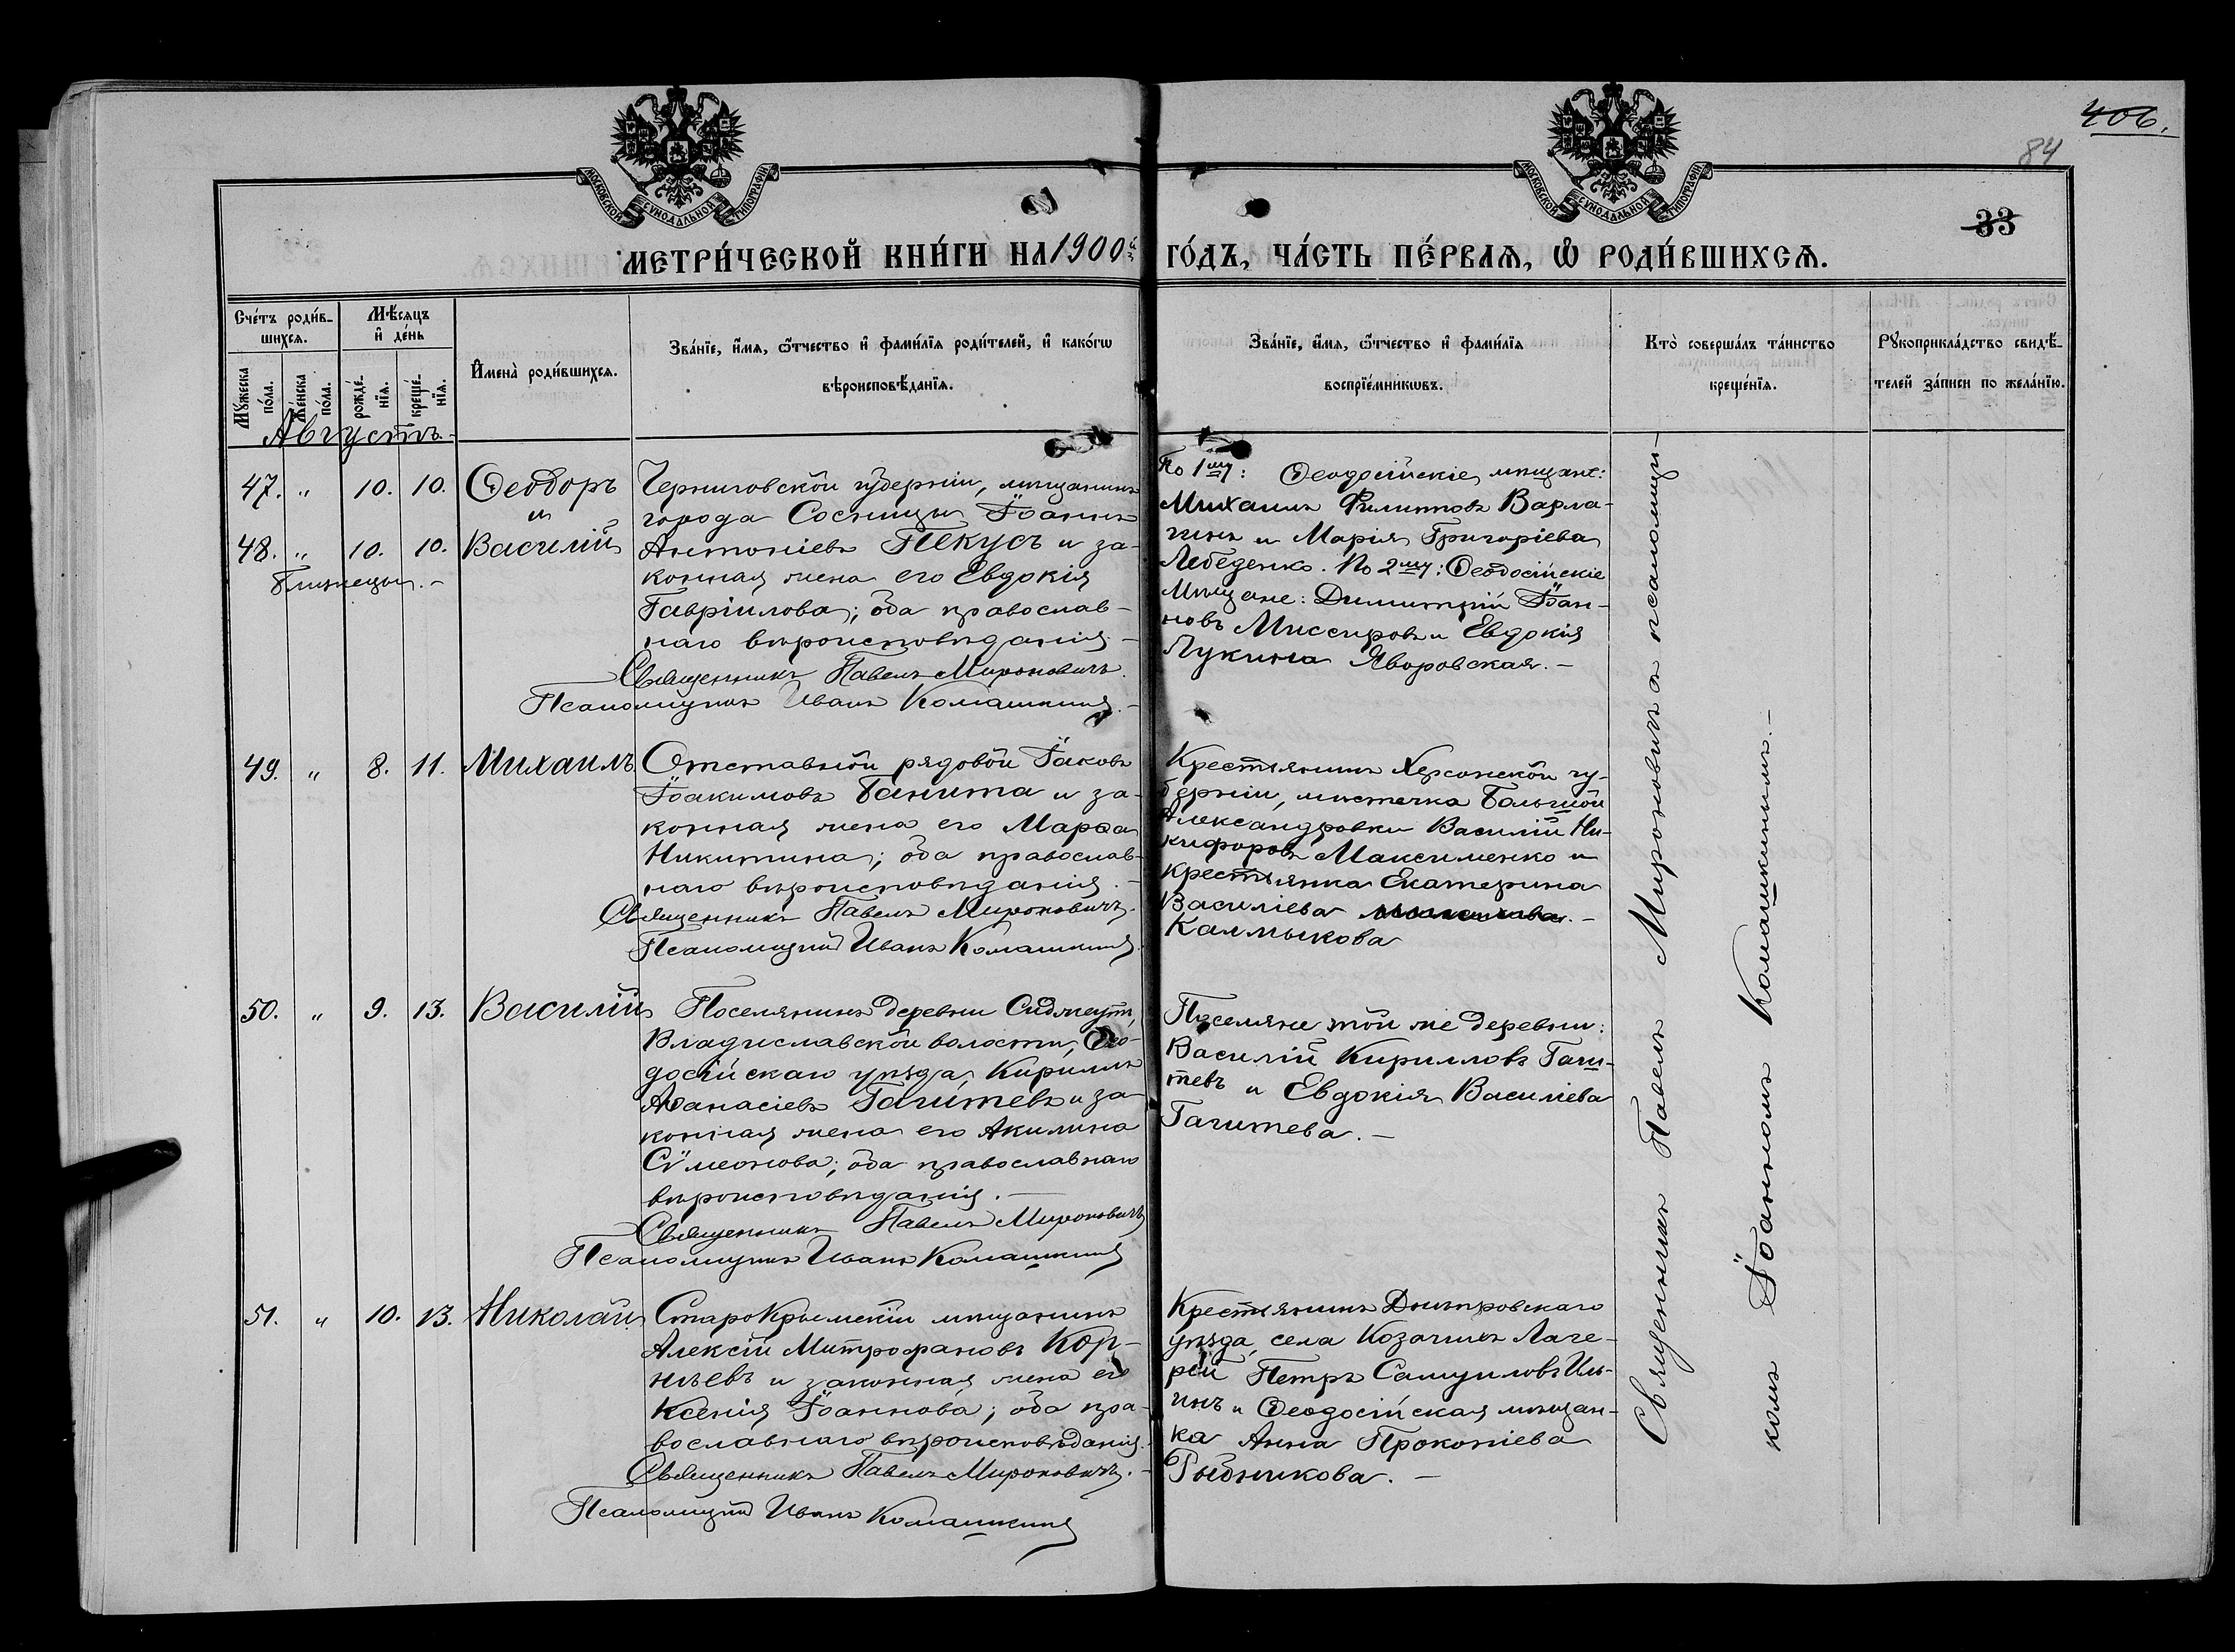 406.
84
33
МОСКОВСКОЙ СѴНОДАЛЬНОЙ ТИПОГРАФІИ
МОСКОВСКОЙ СѴНОДАЛЬНОЙ ТИПОГРАФІИ
МЕТРИ́ЧЕСКОЙ КНИ́ГИ НА 1900й ГО́ДЪ, ЧА́СТЬ ПЕ́РВАѦ, Ѡ РОДИ́ВШИХСѦ.
Сче́тъ роди́в-
шихсѧ.
Мѣ́сѧцъ
и҆ де́нь
Мꙋ́жеска
по́ла.
Же́нска
по́ла.
рожде́-
нїѧ.
креще́-
нїѧ.
И҆мена̀ роди́вшихсѧ.
Зва́нїе, и҆́мѧ, ѻ҆́тчество и҆ фами́лїѧ роди́телей, и҆ како́гѡ
вѣроисповѣ́данїѧ.
Зва́нїе, и҆́мѧ, ѻ҆́тчество и҆ фами́лїѧ
воспрїе́мникѡвъ.
Кто̀ соверша́лъ та́инство
креще́нїѧ.
Рꙋкоприкла́дство свидѣ́-
телей за́писи по жела́нїю.
Августъ.-
47. " 10. 10. Ѳеодоръ
и
48. " 10. 10. Василій
близнецы.-
Черниговской губерніи, мѣщанинъ
города Сосницы Іоаннъ
Антоніевъ Пекусъ и за-
конная жена его Евдокія
Гавріилова; оба православ-
наго вѣроисповѣданія.-
Священникъ Павелъ Мироновичъ.
Псаломщикъ Иванъ Комашкинъ.-
По 1му: Ѳеодосійскіе мѣщане:
Михаилъ Филипповъ Варла-
гинъ и Марія Григоріева
Лебеденко. По 2му: Ѳеодосійскіе
мѣщане: Димитрій Іоан-
новъ Миссировъ и Евдокія
Лукина Яворовская.-
49. " 8. 11. Михаилъ
Отставной рядовой Іаковъ
Іоакимовъ Банита и за-
конная жена его Марѳа
Никитина; оба православ-
наго вѣроисповѣданія.-
Священникъ Павелъ Мироновичъ.
Псаломщикъ Иванъ Комашкинъ.
Крестьянинъ Херсонской гу-
берніи, мѣстечка Большой
Александровки Василій Ни-
кифоровъ Максименко и
крестьянка Екатерина
Василіева
Калмыкова
50. " 9. 13. Василій
Поселянинъ деревни Сиджеутъ,
Владиславской волости, Ѳео-
досійскаго уѣзда, Кириллъ
Аѳанасіевъ Гагитевъ и за-
конная жена его Акилина
Сѵмеонова; оба православнаго
вѣроисповѣданія.-
Священникъ Павелъ Мироновичъ
Псаломщикъ Иванъ Комашкинъ
Поселяне той же деревни:
Василій Кирилловъ Гаги-
тевъ и Евдокія Василіева
Гагитева.-
51. " 10. 13. Николай
Старокрымскій мѣщанинъ
Алексій Митрофановъ Кор-
нѣевъ и законная жена его
Ксенія Іоаннова; оба пра-
вославнаго вѣроисповѣданія.
Священникъ Павелъ Мироновичъ.-
Псаломщикъ Иванъ Комашкинъ
Крестьянинъ Днѣпровскаго
уѣзда, села Козачихъ Лаге-
рей Петръ Самуиловъ Иль-
инъ и Ѳеодосійская мѣщан-
ка Анна Прокопіева
Рыбникова.-
Священникъ Павелъ Мироновичъ а псаломщи-
комъ Іоанномъ Комашкинымъ.-